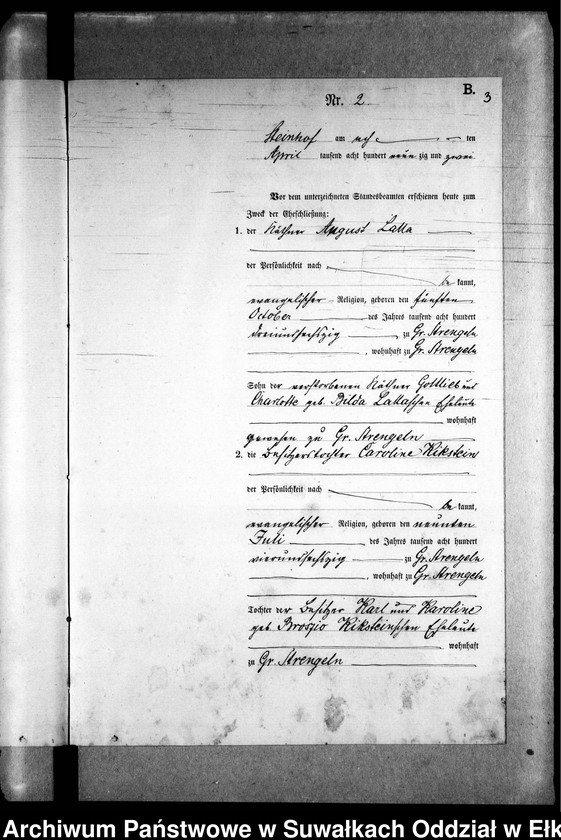 B.
3
Nr. 2.
Steinhof am ten
April tausend acht hundert neunzig und zwei
Vor dem unterzeichneten Standesbeamten erschienen heute zum
Zweck der Eheschließung:
1. der Käthner August Latta
der Persönlichkeit nach
bekannt,
evangelischer Religion, geboren den fünften
October des Jahres tausend acht hundert
dreiundsechszig zu Gr. Strengeln
, wohnhaft zu Gr. Strengeln
Sohn der verstorbenen Käthner Gottlieb und
Charlotte geb. Bilda Lattaschen Eheleute
wohnhaft
gewesen zu Gr. Strengeln
2. die Besitzerstochter Caroline Kikstein
der Persönlichkeit nach
bekannt,
evangelischer Religion, geboren den neunten
Juli des Jahres tausend acht hundert
vierundsechszig zu Gr. Strengeln
, wohnhaft zu Gr. Strengeln
Tochter der Besitzer Karl und Karoline
geb. Broszio Kiksteinschen Eheleute
wohnhaft
zu Gr. Strengeln
Archiwum Państwowe w Suwałkach Oddział w Ełk